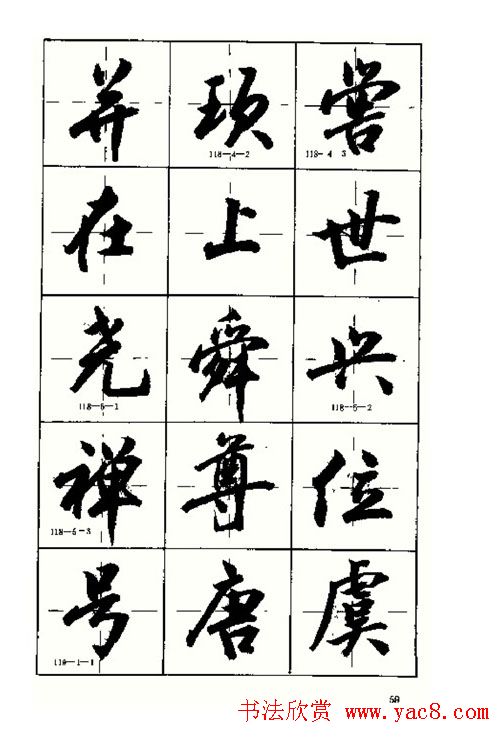 并 顼 喾
118—4—2 118—4 3
在 上 世
尧 舜 兴
118—5—1 118—5—2
禅 尊 位
118—5—3
号 唐 虞
119—1—1
59
书法欣赏 www.yac8.com